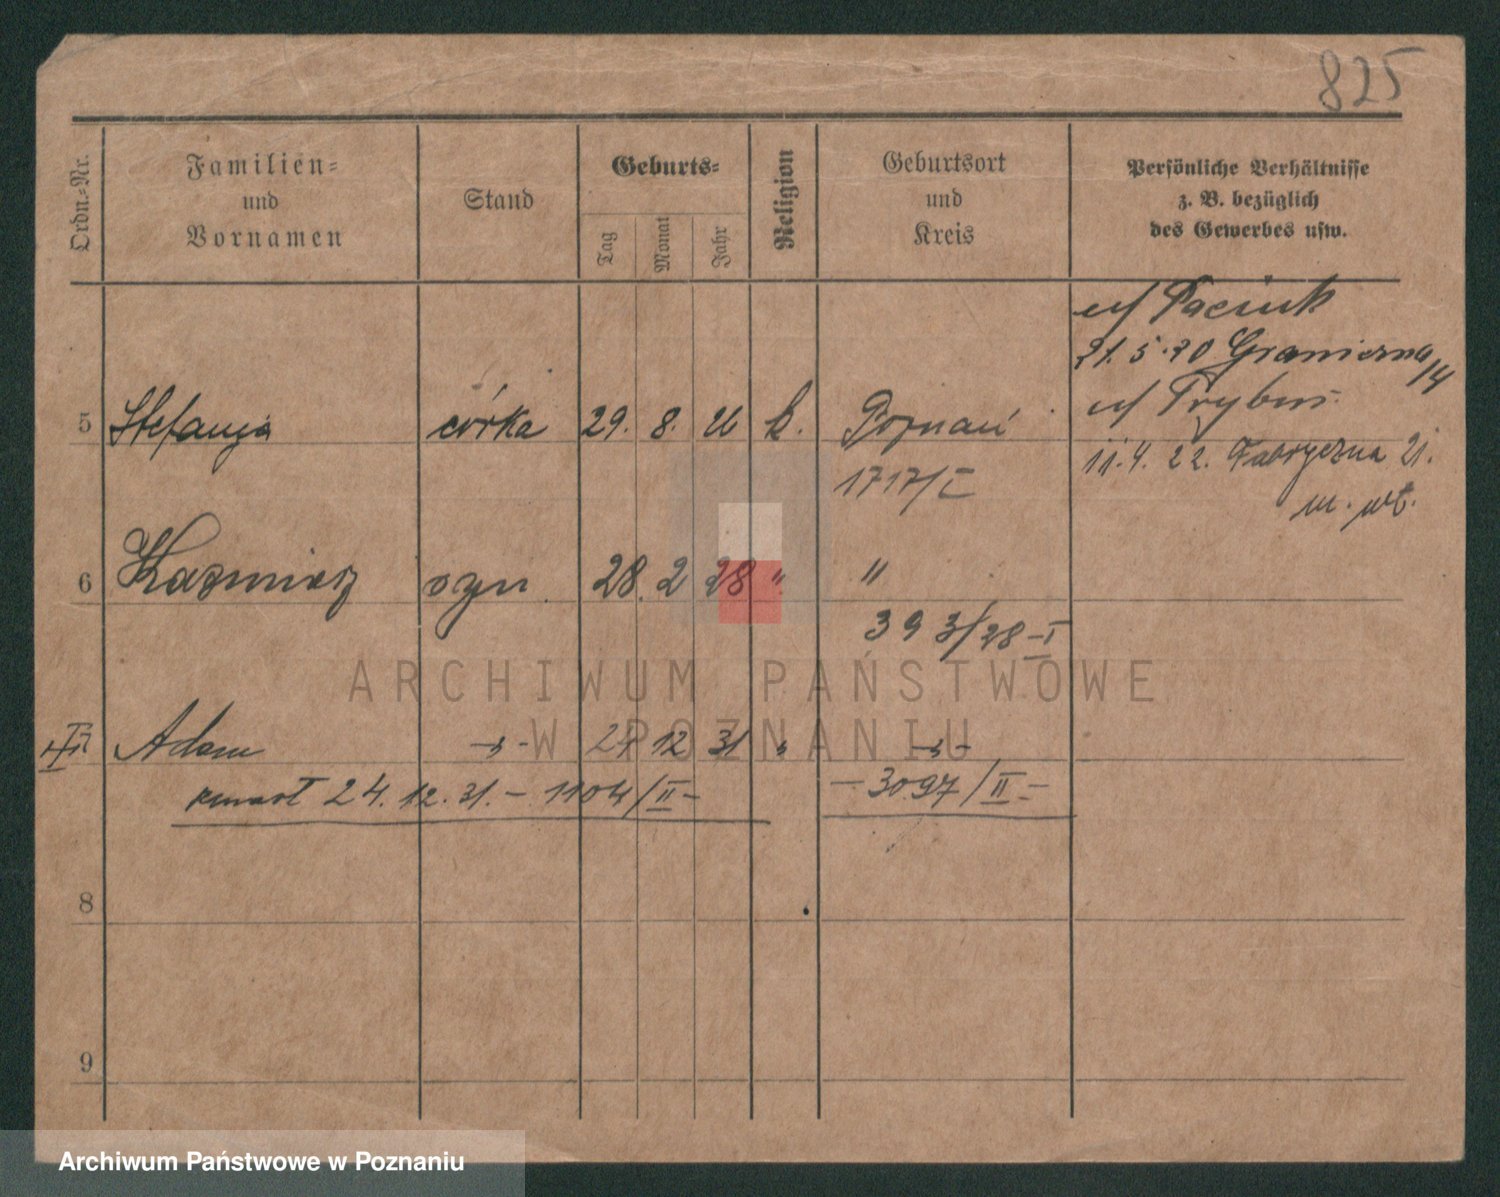 825
Ordn.-Nr.
Familien-
und
Vornamen
Stand
Geburts-
Tag
Monat
Jahr
Religion
Geburtsort
und
Kreis
Persönliche Verhältnisse
z. B. bezüglich
des Gewerbes usw.
21.5.20 Graniczna 14
11.4.22. Fabryczna 21.
5 Stefanja córka 29. 8. 26 k. Poznań
1717/I
6 Kazimierz syn 28. 2 28 " "
393/28-I
Adam 12 31
zmarł 24.12.31. - 1104/II -
- 3097/II -
8
9
ARCHIWUM PAŃSTWOWE
W POZNANIU
Archiwum Państwowe w Poznaniu